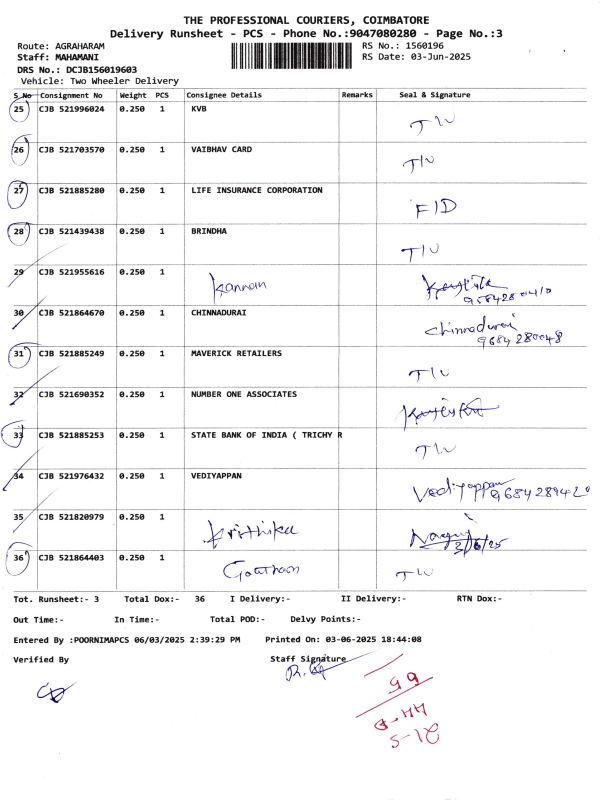 THE PROFESSIONAL COURIERS, COIMBATORE
Delivery Runsheet - PCS - Phone No.:9047080280 - Page No.:3
Route: AGRAHARAM RS No.: 1560196
Staff: MAHAMANI RS Date: 03-Jun-2025
DRS No.: DCJB156019603
Vehicle: Two Wheeler Delivery
S.No Consignment No Weight PCS Consignee Details Remarks Seal & Signature
25 CJB 521996024 0.250 1 KVB T/U
26 CJB 521703570 0.250 1 VAIBHAV CARD T/U
27 CJB 521885280 0.250 1 LIFE INSURANCE CORPORATION F/D
28 CJB 521439438 0.250 1 BRINDHA T/U
29 CJB 521955616 0.250 1 Kannan
30 CJB 521864670 0.250 1 CHINNADURAI Chinnadurai
9684280048
31 CJB 521885249 0.250 1 MAVERICK RETAILERS T/U
32 CJB 521690352 0.250 1 NUMBER ONE ASSOCIATES
33 CJB 521885253 0.250 1 STATE BANK OF INDIA ( TRICHY R T/U
34 CJB 521976432 0.250 1 VEDIYAPPAN Vediyappan 9684289420
35 CJB 521820979 0.250 1 Krithika
3/6/25
36 CJB 521864403 0.250 1 Goutham T/U
Tot. Runsheet:- 3 Total Dox:- 36 I Delivery:- II Delivery:- RTN Dox:-
Out Time:- In Time:- Total POD:- Delvy Points:-
Entered By :POORNIMAPCS 06/03/2025 2:39:29 PM Printed On: 03-06-2025 18:44:08
Verified By Staff Signature